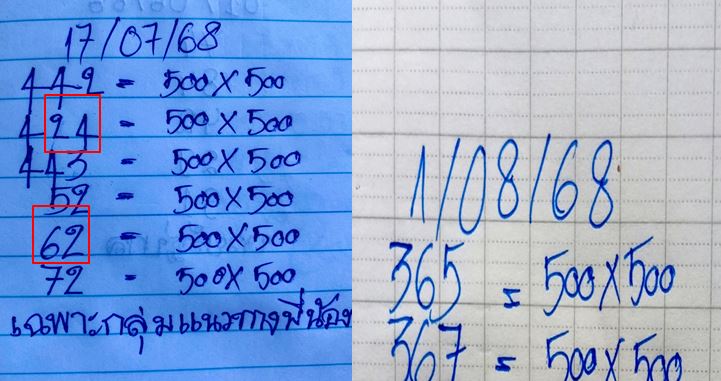 17/07/68
442 = 500X500
424 = 500X500
443 = 500X500
52 = 500X500
62 = 500X500
72 = 500X500
เฉพาะกลุ่มแนวทางพี่น้อง
1/08/68
365 = 500X500
367 = 500X500